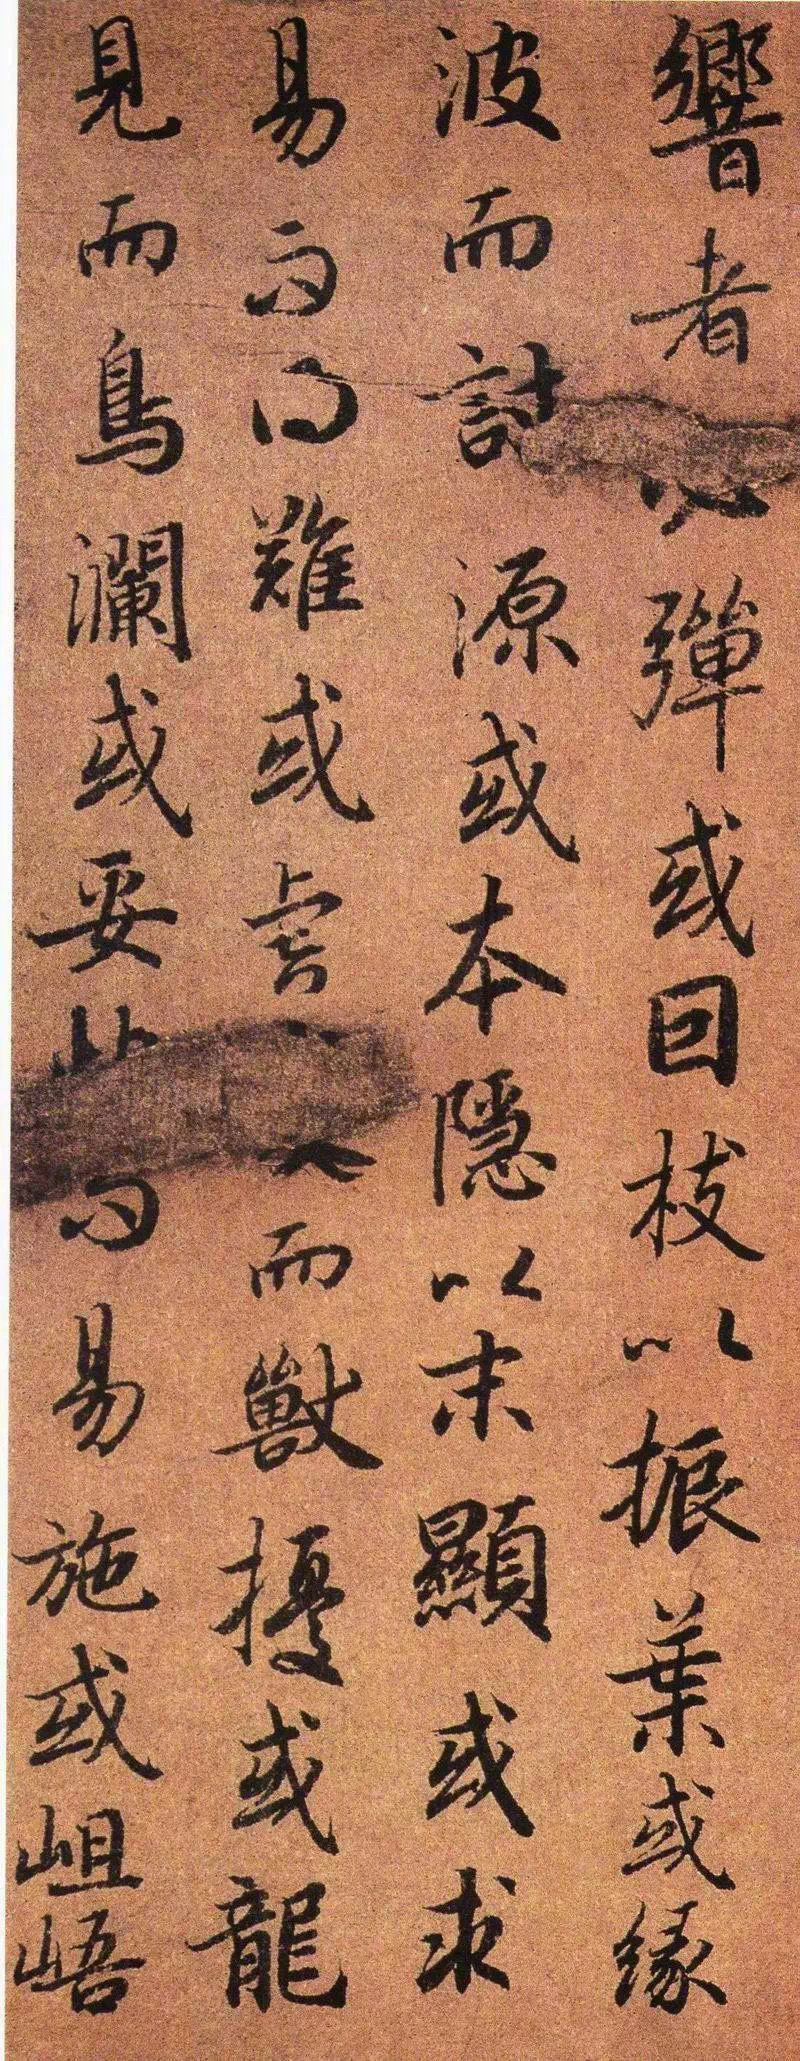 響者彈或因枝以振葉或緣
波而討源或本隱以末顯或求
易而得難或虎而獸擾或龍
見而鳥瀾或妥而易施或岨峿